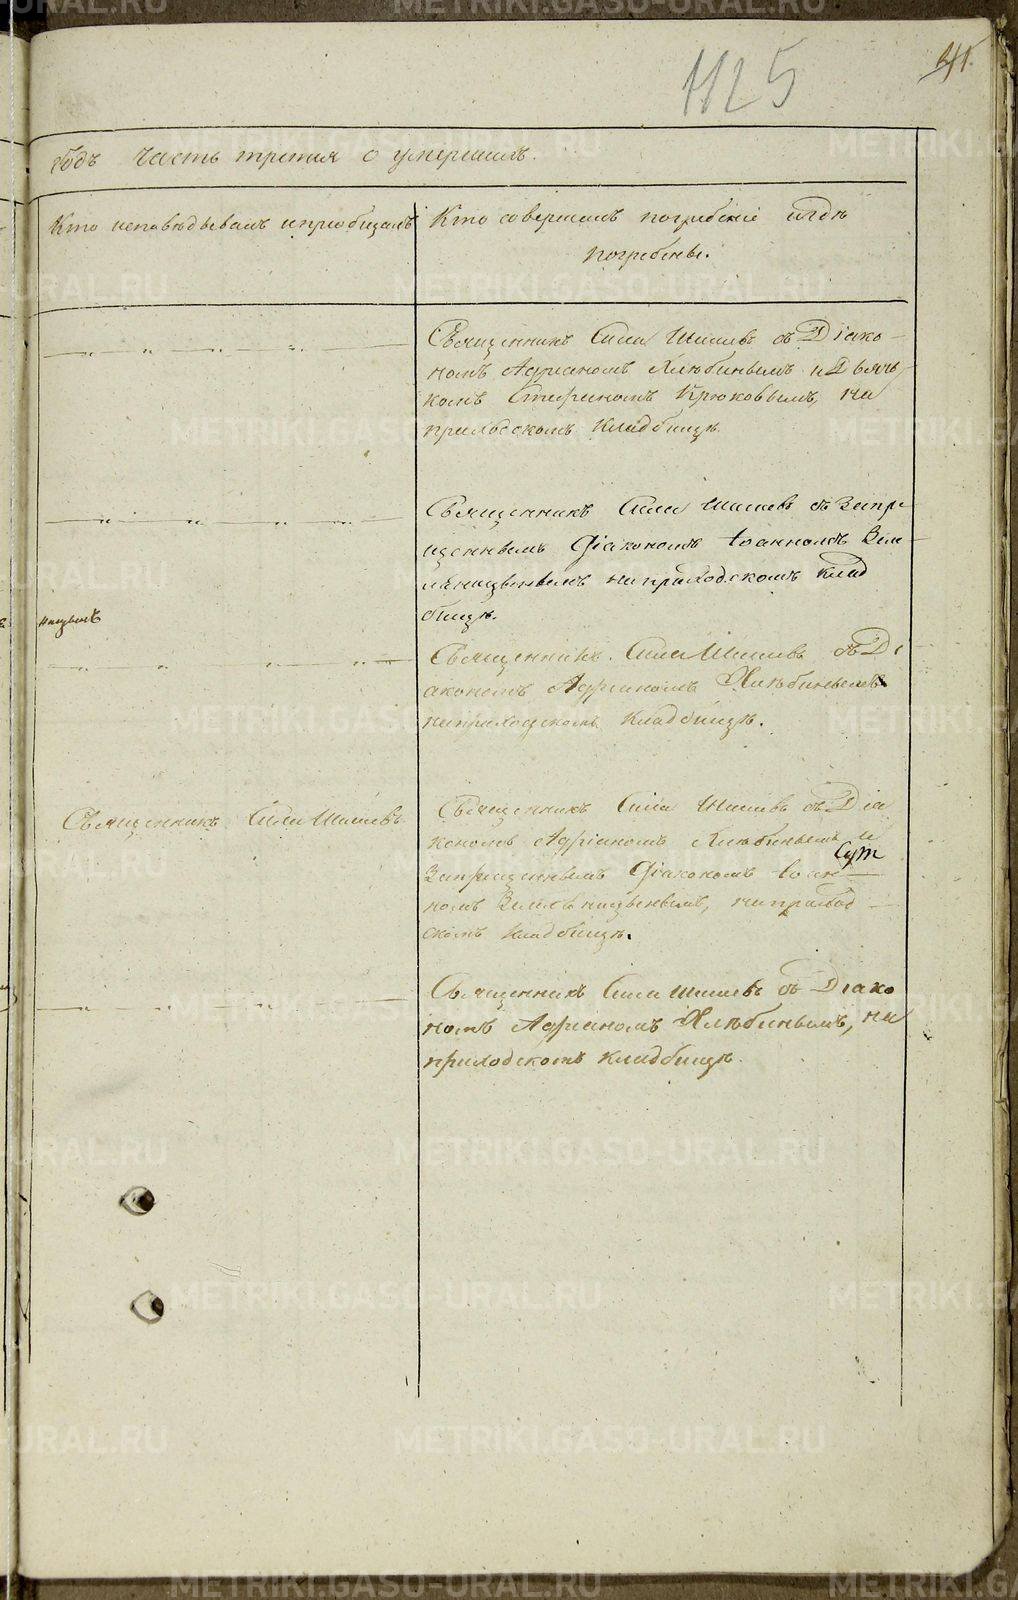 1125
годъ часть третия о умершихъ.
Кто исповѣдывалъ и приобщалъ
Кто совершалъ погребение и гдѣ
погребены.
Священникъ Сила Шишевъ съ Діако-
номъ Адрианомъ Хлѣбинымъ и Дьяч-
комъ Стефаномъ Крюковымъ, на
приходскомъ кладбищѣ.
Священникъ Сила Шишевъ съ Запре-
щеннымъ Діакономъ Іоанномъ
на приходскомъ клад
бищѣ.
Священникъ Сила Шишевъ съ Ді
акономъ Адрианомъ Хлѣбинымъ
на приходскомъ кладбищѣ.
Священникъ Сила Шишевъ
Священникъ Сила Шишевъ съ Діа
кономъ Адріаномъ Хлѣбинымъ и
Запрещеннымъ Діакономъ Іоан
номъ на приход
скомъ кладбищѣ.
Священникъ Сила Шишевъ съ Діако
номъ Адрианомъ Хлѣбинымъ, на
приходскомъ кладбищѣ.
METRIKI.GASO-URAL.RU